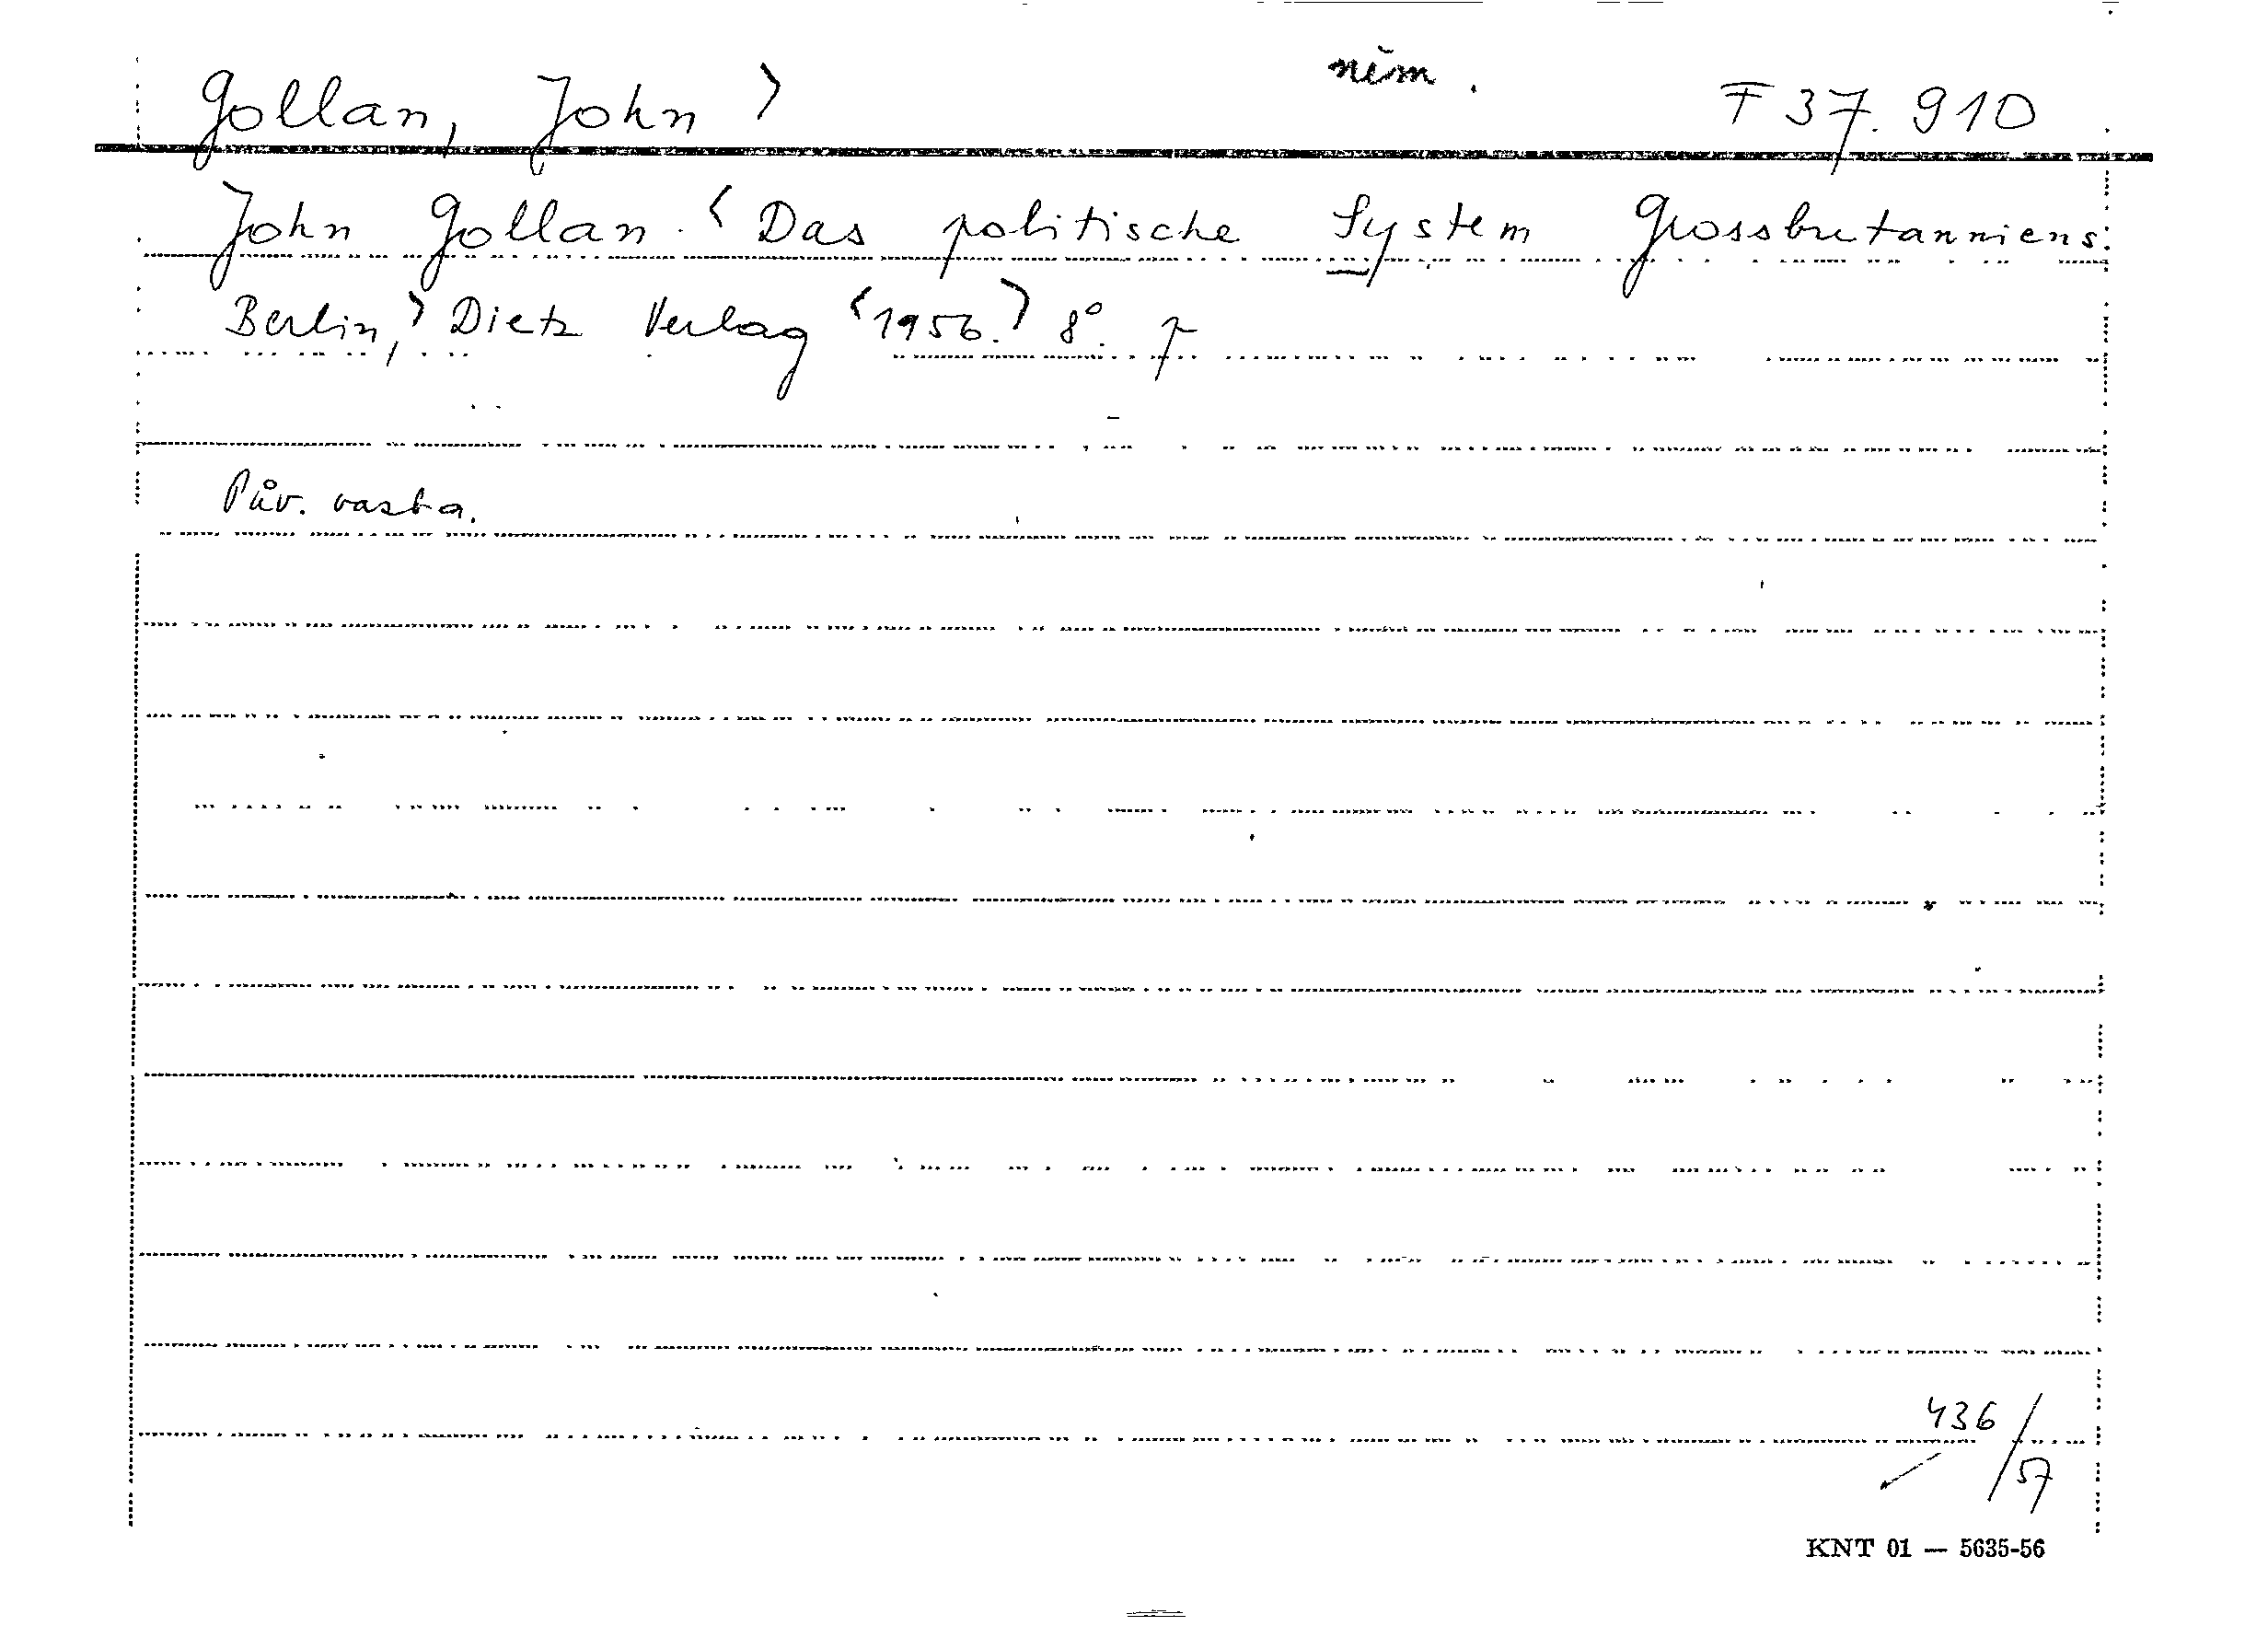 něm.
Gollan, John > F 37.910
John Gollan. < Das politische System Grossbritanniens.
Berlin, > Dietz Verlag < 1956. > 8°. p
Pův. vazba.
436/57
KNT 01 — 5635-56